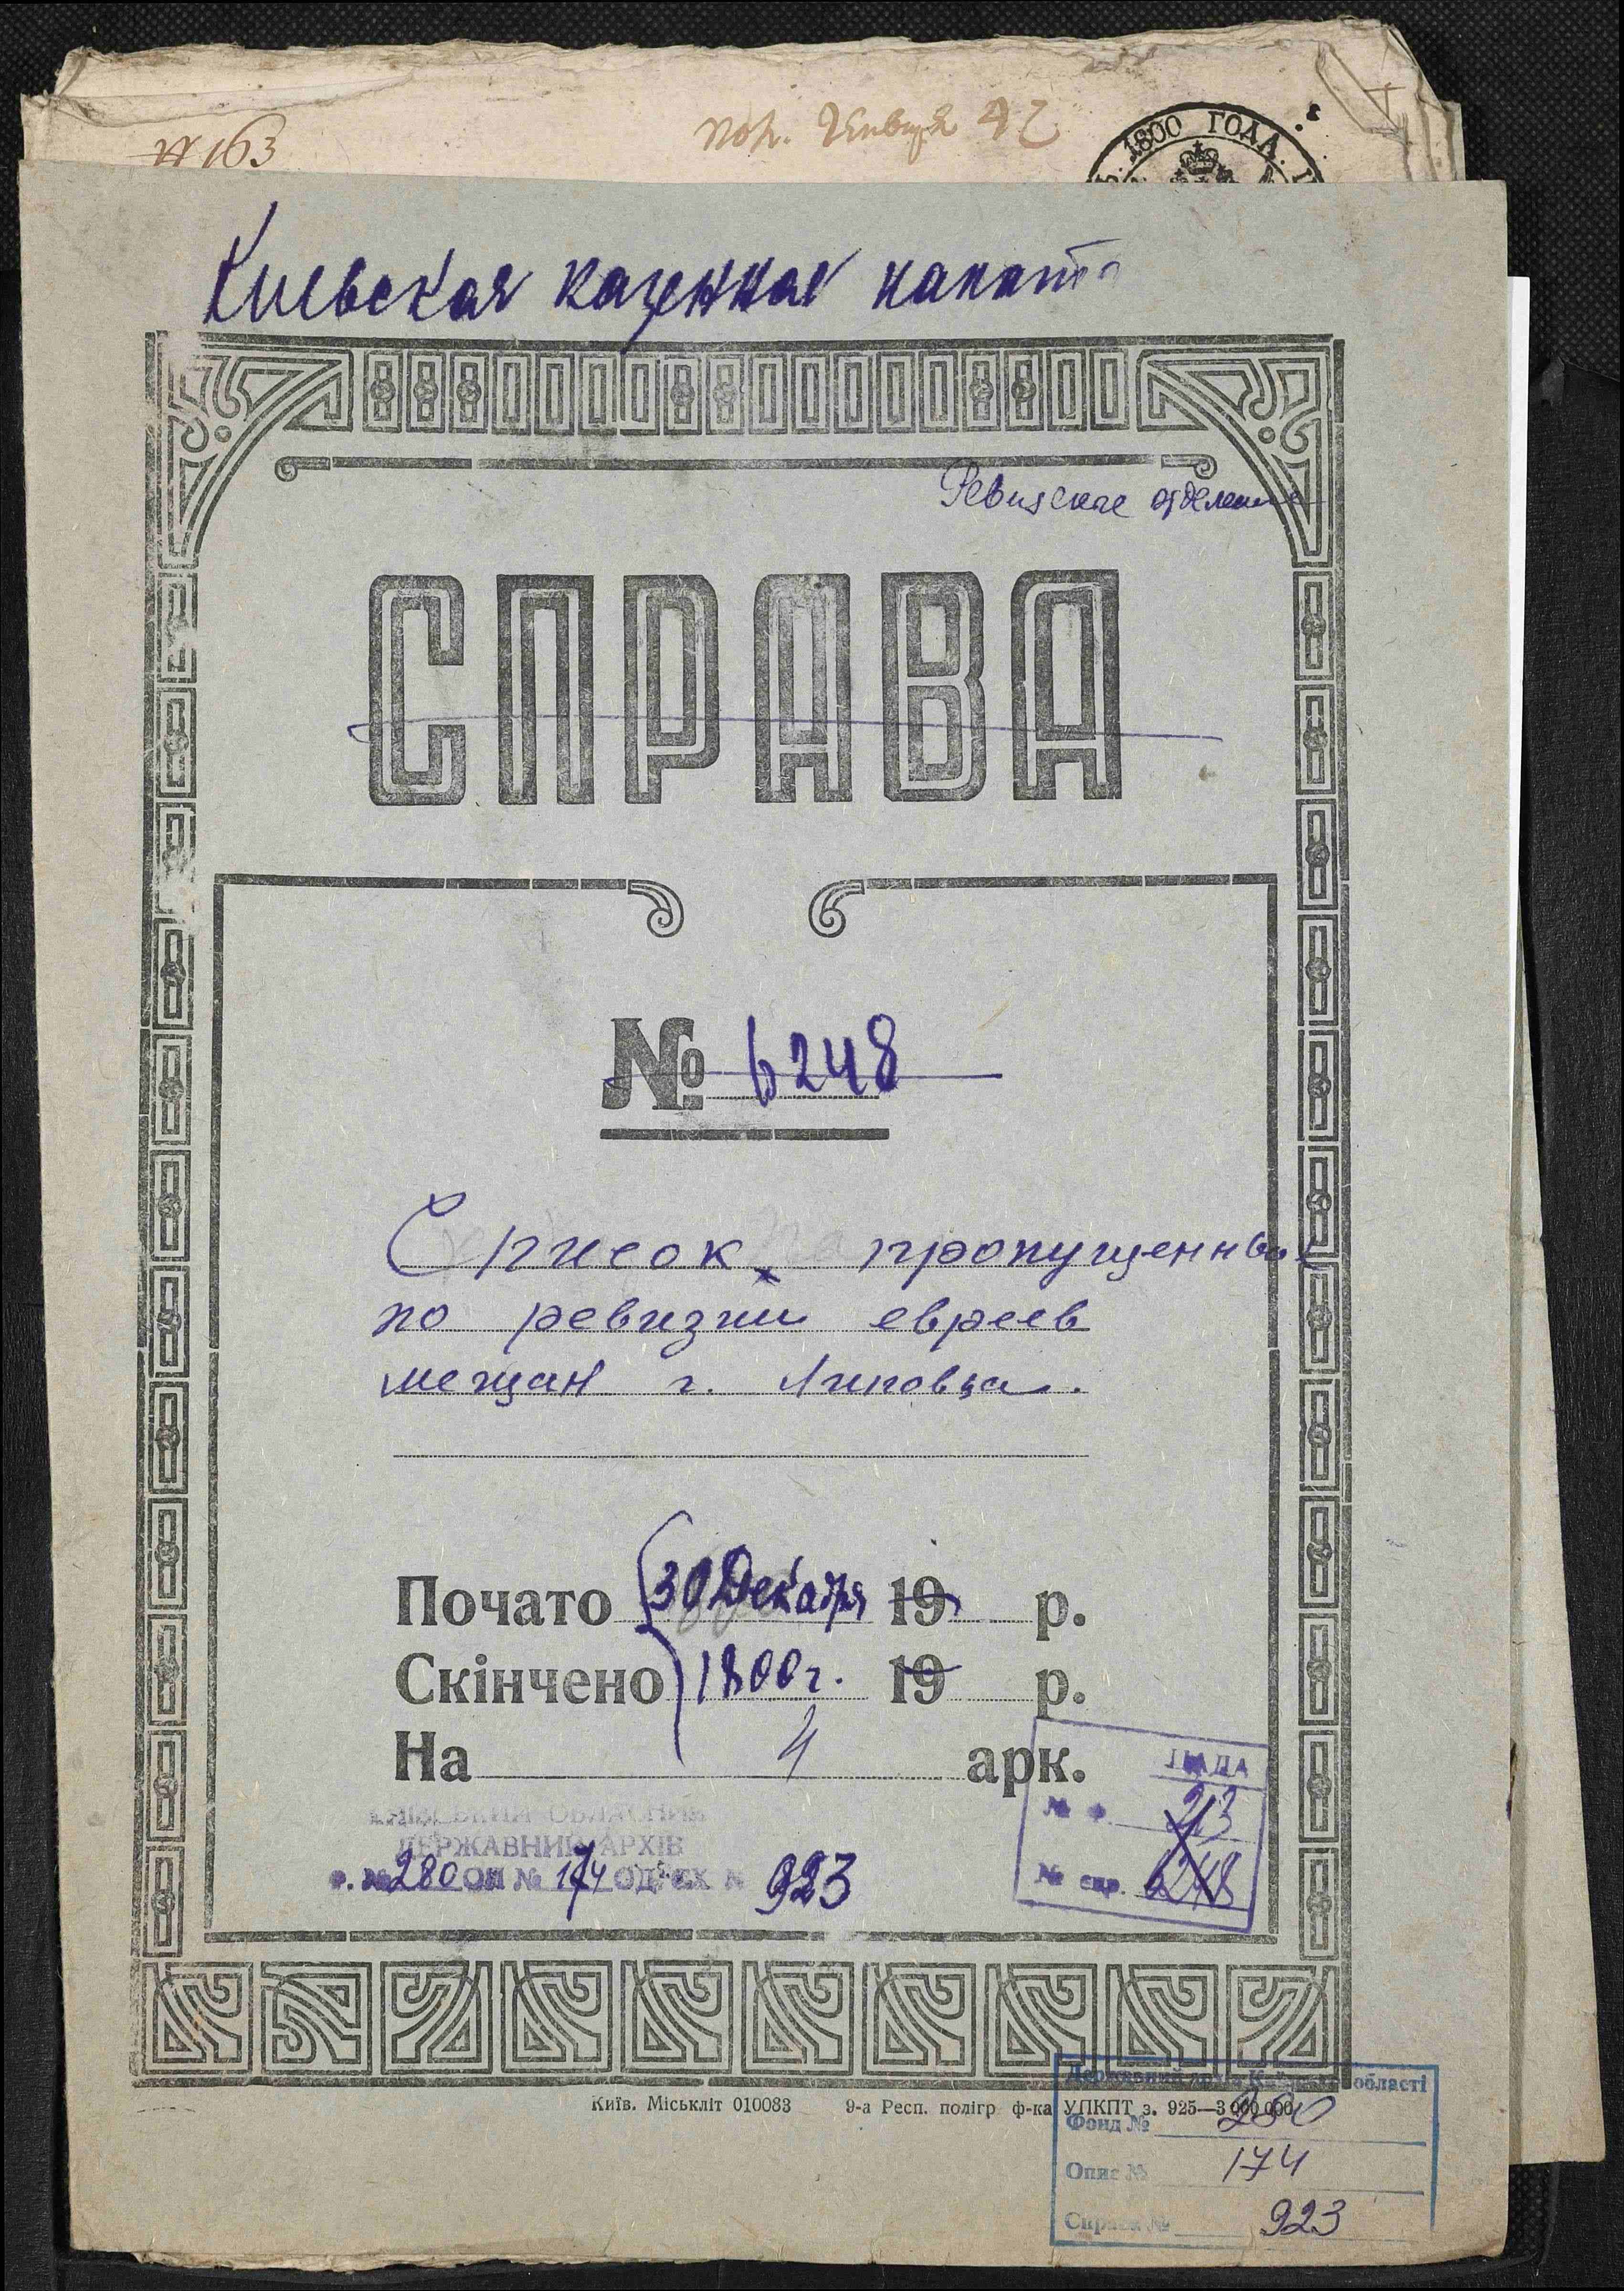 № 163
1800 ГОДА.
Киевская казенная палата
Ревизское отделение
СПРАВА
№ 6248
Список пропущенных
по ревизии евреев
мещан г. Липовца.
Почато 30 Декабря 19 р.
Скінчено 1800 г. 19 р.
На 4 арк.
ЦАДА
№ ф. 213
№ спр. 6248
КИЇВСЬКИЙ ОБЛАСНИЙ
ДЕРЖАВНИЙ АРХІВ
Ф. № 280 ОП № 174 ОД. ЗХ № 923
Київ. Міськліт 010083 9-а Респ. полігр ф-ка УПКПТ з. 925—3 000 000
Державний архів Київської області
Фонд № 280
Опис № 174
Справа № 923